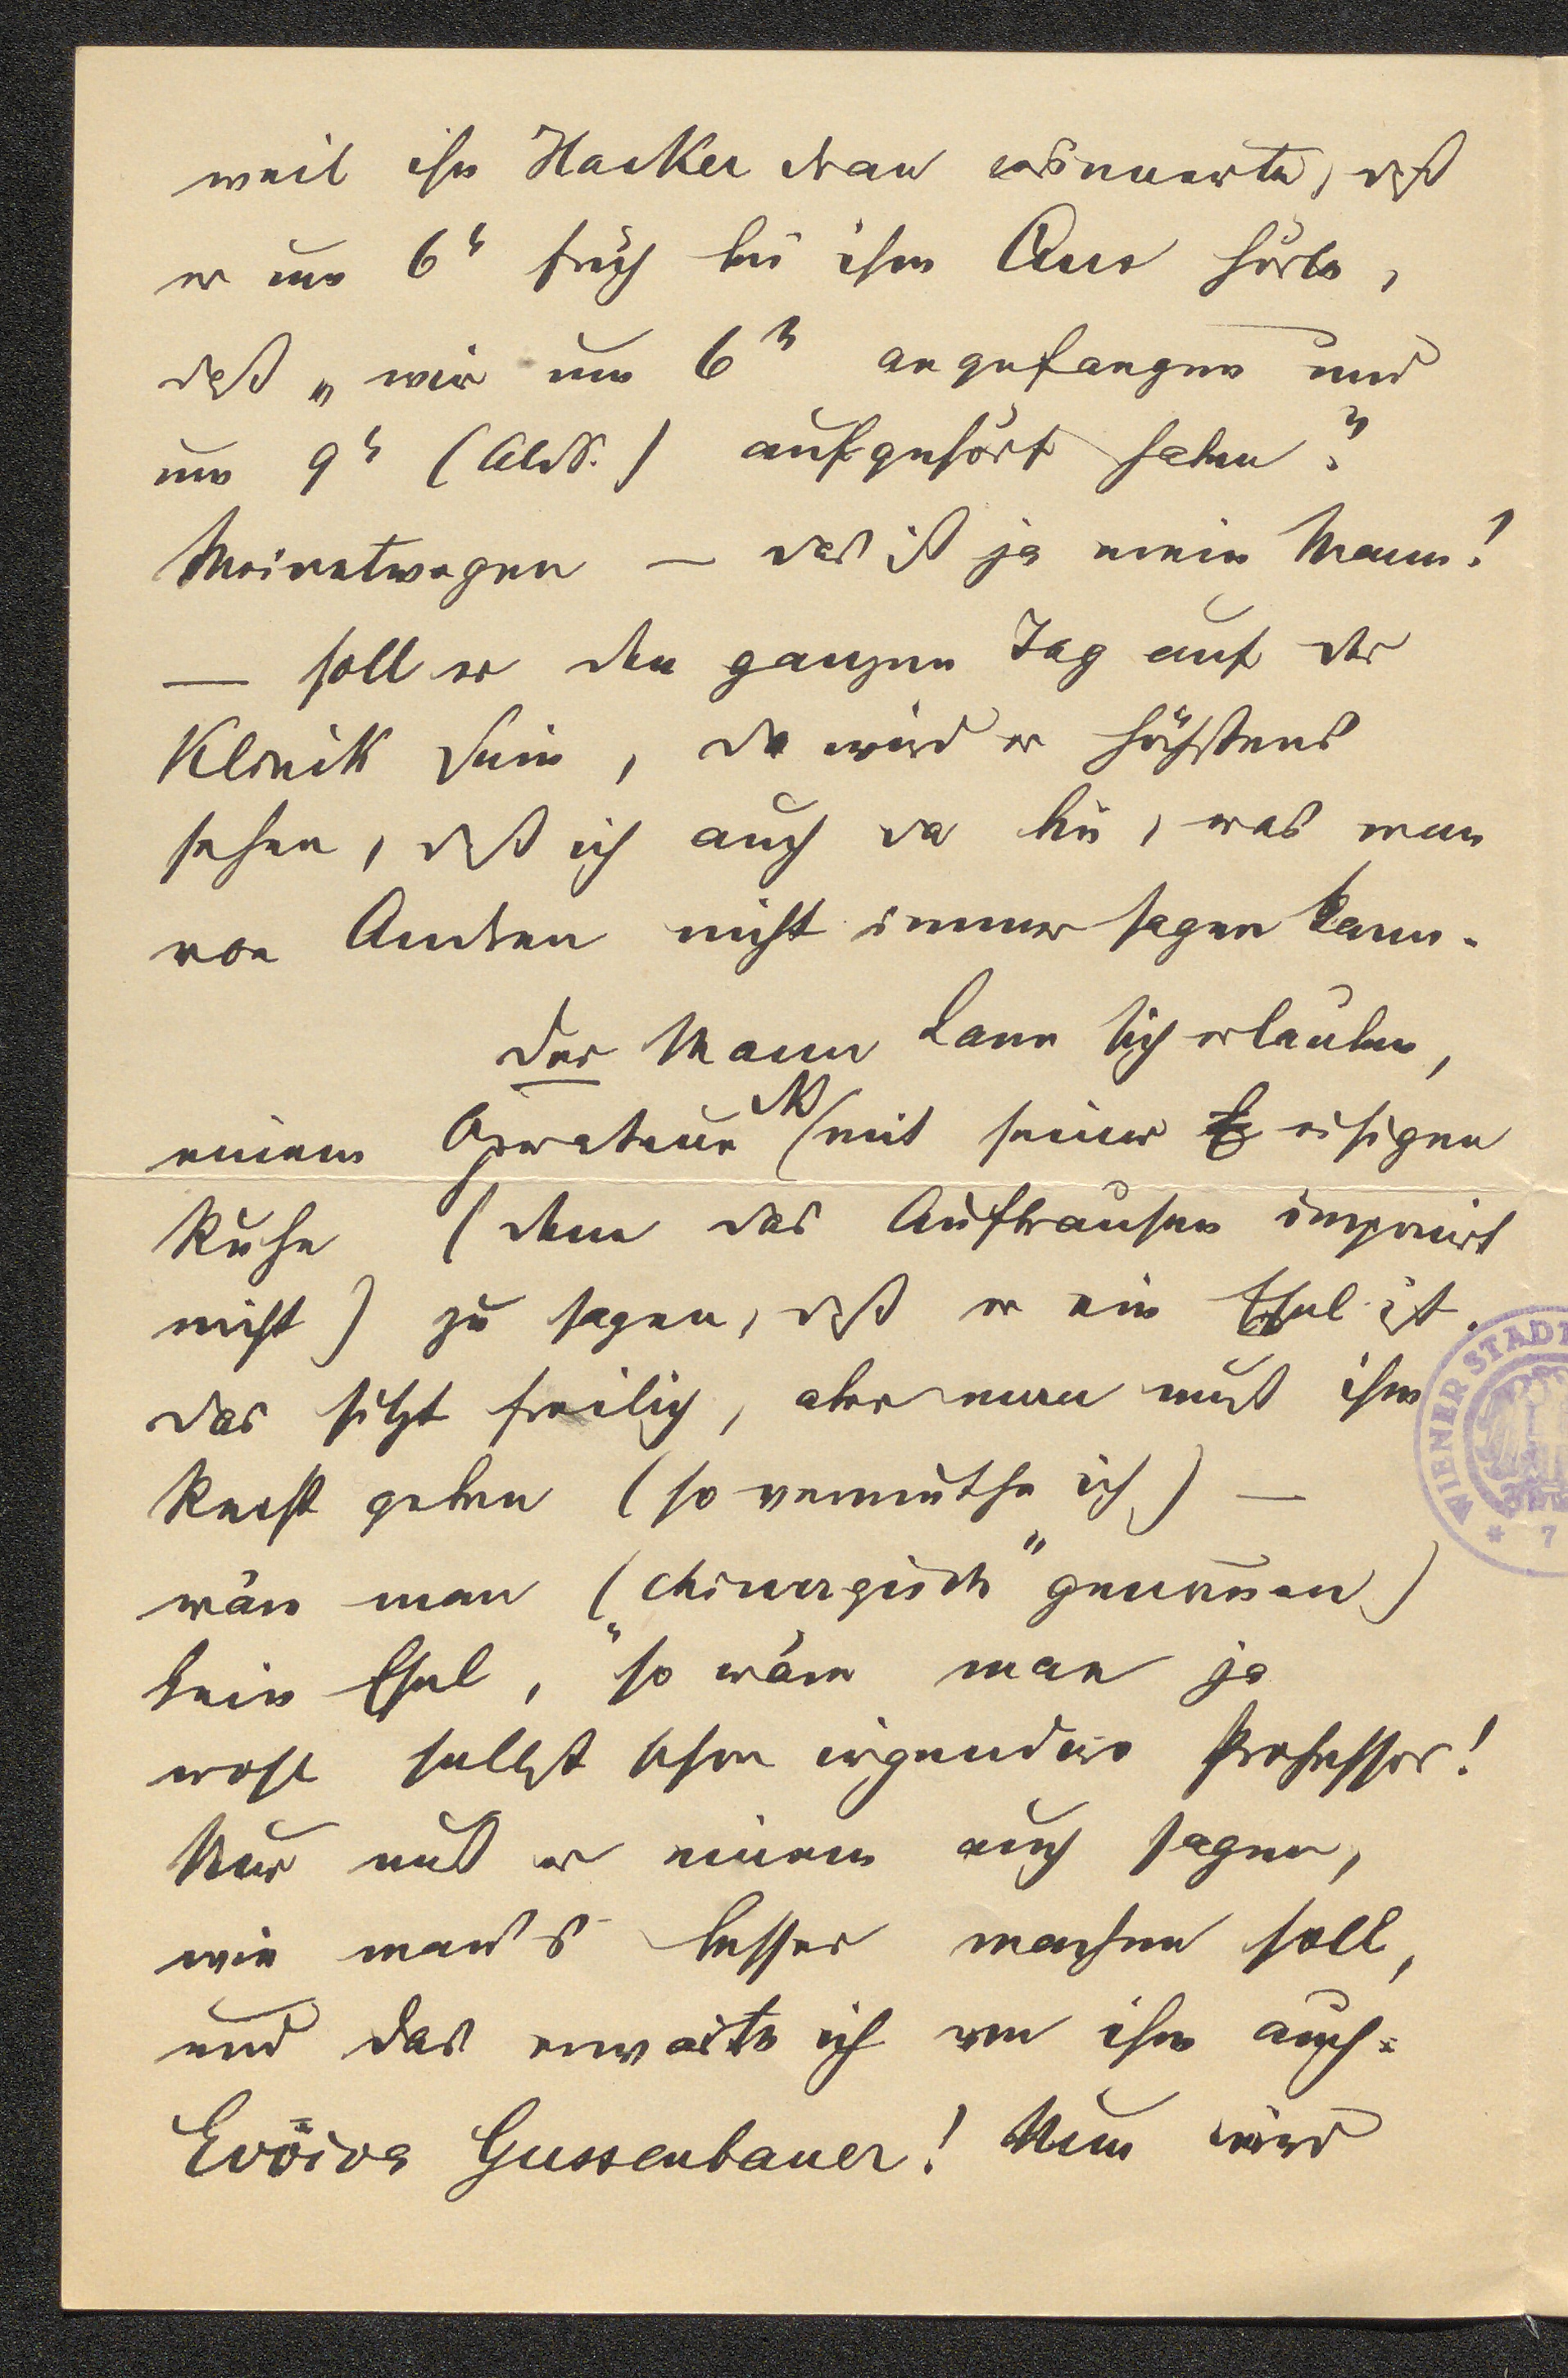 weil ihn Hacker dran erinnerte, daß
er um 6ʰ früh bei ihm Aus hörte,
daß „wir um 6ʰ angefangen und
um 9ʰ (Abds.) aufgehört haben“?
Meinetwegen — das ist ja mein Mann!
— soll er den ganzen Tag auf der
Klinik sein, da wird er höchstens
sehen, daß ich auch da bin, was man
von Andren nicht immer sagen kann.
Der Mann kann sich erlauben,
einem Operateur (mit seiner eisigen
Ruhe (denn das Aufbrausen imponirt
nicht) zu sagen, daß er ein Esel ist.
das sitzt freilich, aber man muß ihm
Recht geben (so vermuthe ich) —
wäre man („chirurgisch“ genommen)
kein Esel, so wäre man ja
wohl selbst schon irgendwo Professor!
Nur muß er einem auch sagen,
wie man's besser machen soll,
und das erwarte ich von ihm auch.
Evviva Gussenbauer! Nun wird
WIENER STADT
* 7